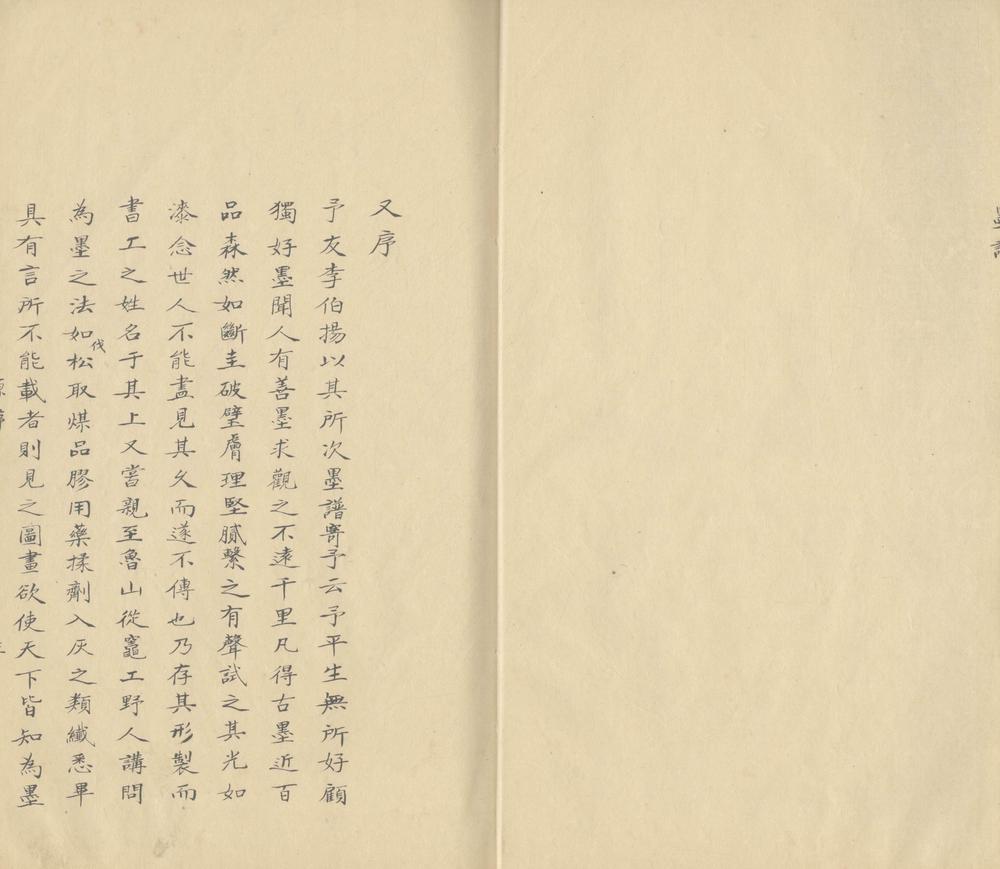 墨譜
又序
予友李伯揚以其所次墨譜寄予云予平生無所好顧
獨好墨聞人有善墨求觀之不遠千里凡得古墨近百
品森然如斷圭破璧膚理堅膩繫之有聲試之其光如
漆念世人不能盡見其久而遂不傳也乃存其形製而
書工之姓名于其上又嘗親至魯山從竈工野人講問
為墨之法如伐松取煤品膠用藥揉劑入灰之類纖悉畢
具有言所不能載者則見之圖畫欲使天下皆知為墨